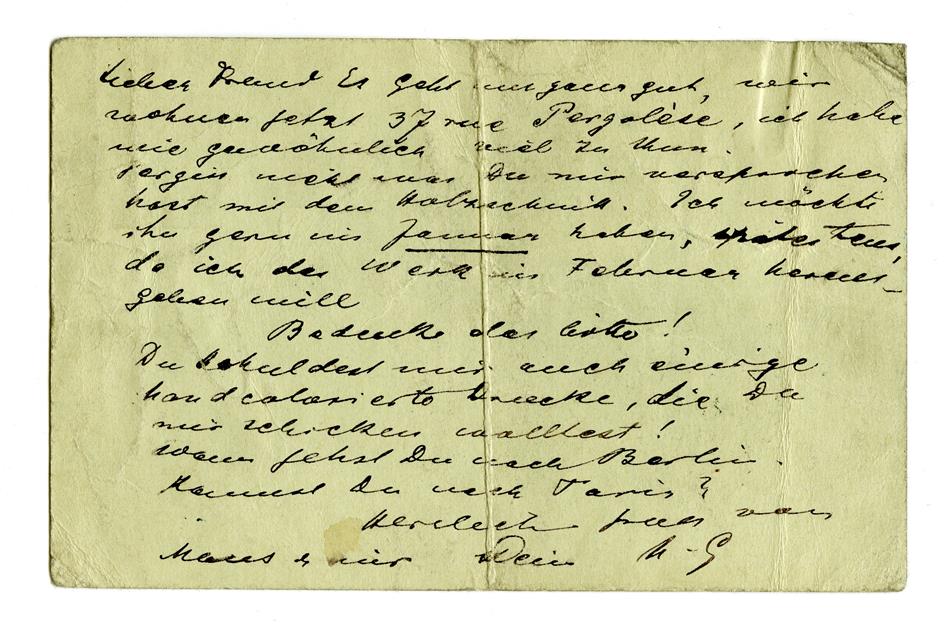 Lieber Freund Es geht uns ganz gut, wir
wohnen jetzt 37 rue Pergolèse, ich habe
wie gewöhnlich viel zu thun.
Vergiss nicht was Du mir versprochen
hast mit dem Holzschnitt. Ich möchte
ihn gern im Januar haben, spätestens,
da ich das Werk im Februar heraus-
geben will
Bedenke das bitte!
Du schuldest mir auch einige
handcolorierte Drucke, die Du
mir schicken wolltest!
wann gehst Du nach Berlin.
Kommst Du nach Paris?
Herzlich gruss von
Maus & mir Dein H-G